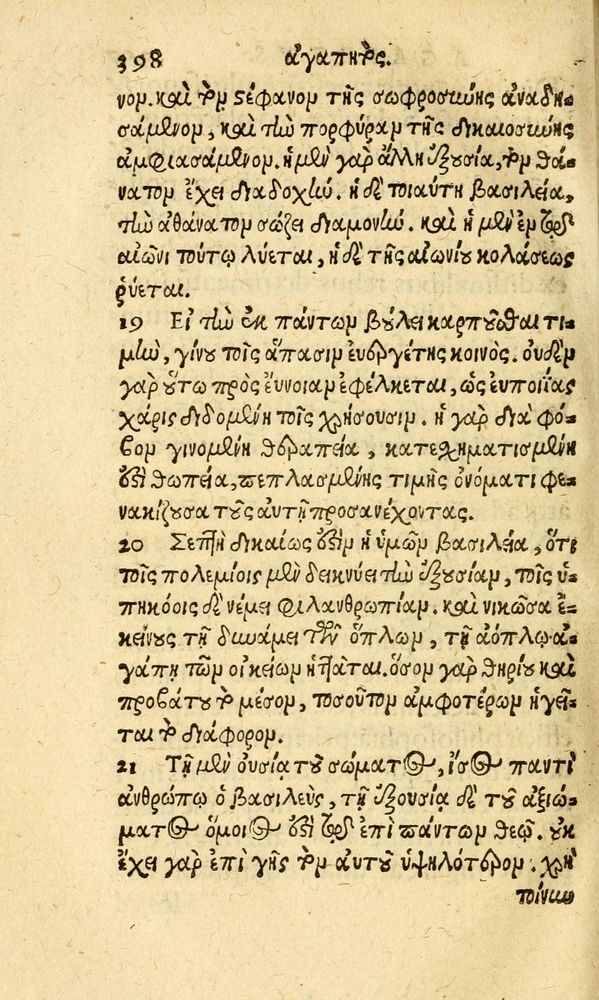 398 ἀγαπητός.
νον. καὶ τὸν στέφανον τῆς σωφροσύνης ἀναδη-
σάμενον, καὶ τὴν πορφύραν τῆς δικαιοσύνης
ἀμφιασάμενον. ἡ μὲν γὰρ ἄλλη ἐξουσία, τὸν θά-
νατον ἔχει διαδοχήν. ἡ δὲ τοιαύτη βασιλεία,
τὴν ἀθάνατον σώζει διαμονήν. καὶ ἡ μὲν ἐν τῷ
αἰῶνι τούτῳ λύεται, ἡ δὲ τῆς αἰωνίου κολάσεως
ῥύεται.
19 Εἰ τὴν ἐκ πάντων βούλει καρποῦσθαι τι-
μὴν, γίνου τοῖς ἅπασιν εὐεργέτης κοινός. οὐδὲν
γὰρ οὕτω πρὸς εὔνοιαν ἐφέλκεται, ὡς εὐποιΐας
χάρις διδομένη τοῖς χρήσουσιν. ἡ γὰρ διὰ φό-
βον γινομένη θεραπεία, κατεσχηματισμένη
ἐστὶ θωπεία, πεπλασμένης τιμῆς ὀνόματι φε-
νακίζουσα τοὺς αὐτῇ προσανέχοντας.
20 Σεπτὴ δικαίως ἐστὶν ἡ ὑμῶν βασιλεία, ὅτι
τοῖς πολεμίοις μὲν δεικνύει τὴν ἐξουσίαν, τοῖς ὑ-
πηκόοις δὲ νέμει φιλανθρωπίαν. καὶ νικῶσα ἐ-
κείνους τῇ δυνάμει τῶν ὅπλων, τῇ ἀόπλῳ ἀ-
γάπῃ τῶν οἰκείων ἡττᾶται. ὅσον γὰρ θηρίου καὶ
προβάτου τὸ μέσον, τοσοῦτον ἀμφοτέρων ἡγεῖ-
ται τὸ διάφορον.
21 Τῇ μὲν οὐσίᾳ τοῦ σώματος, ἴσος παντὶ
ἀνθρώπῳ ὁ βασιλεὺς, τῇ ἐξουσίᾳ δὲ τοῦ ἀξιώ-
ματος ὅμοιός ἐστι τῷ ἐπὶ πάντων θεῷ. οὐκ
ἔχει γὰρ ἐπὶ γῆς τὸν αὐτοῦ ὑψηλότερον. χρὴ
τοίνυν